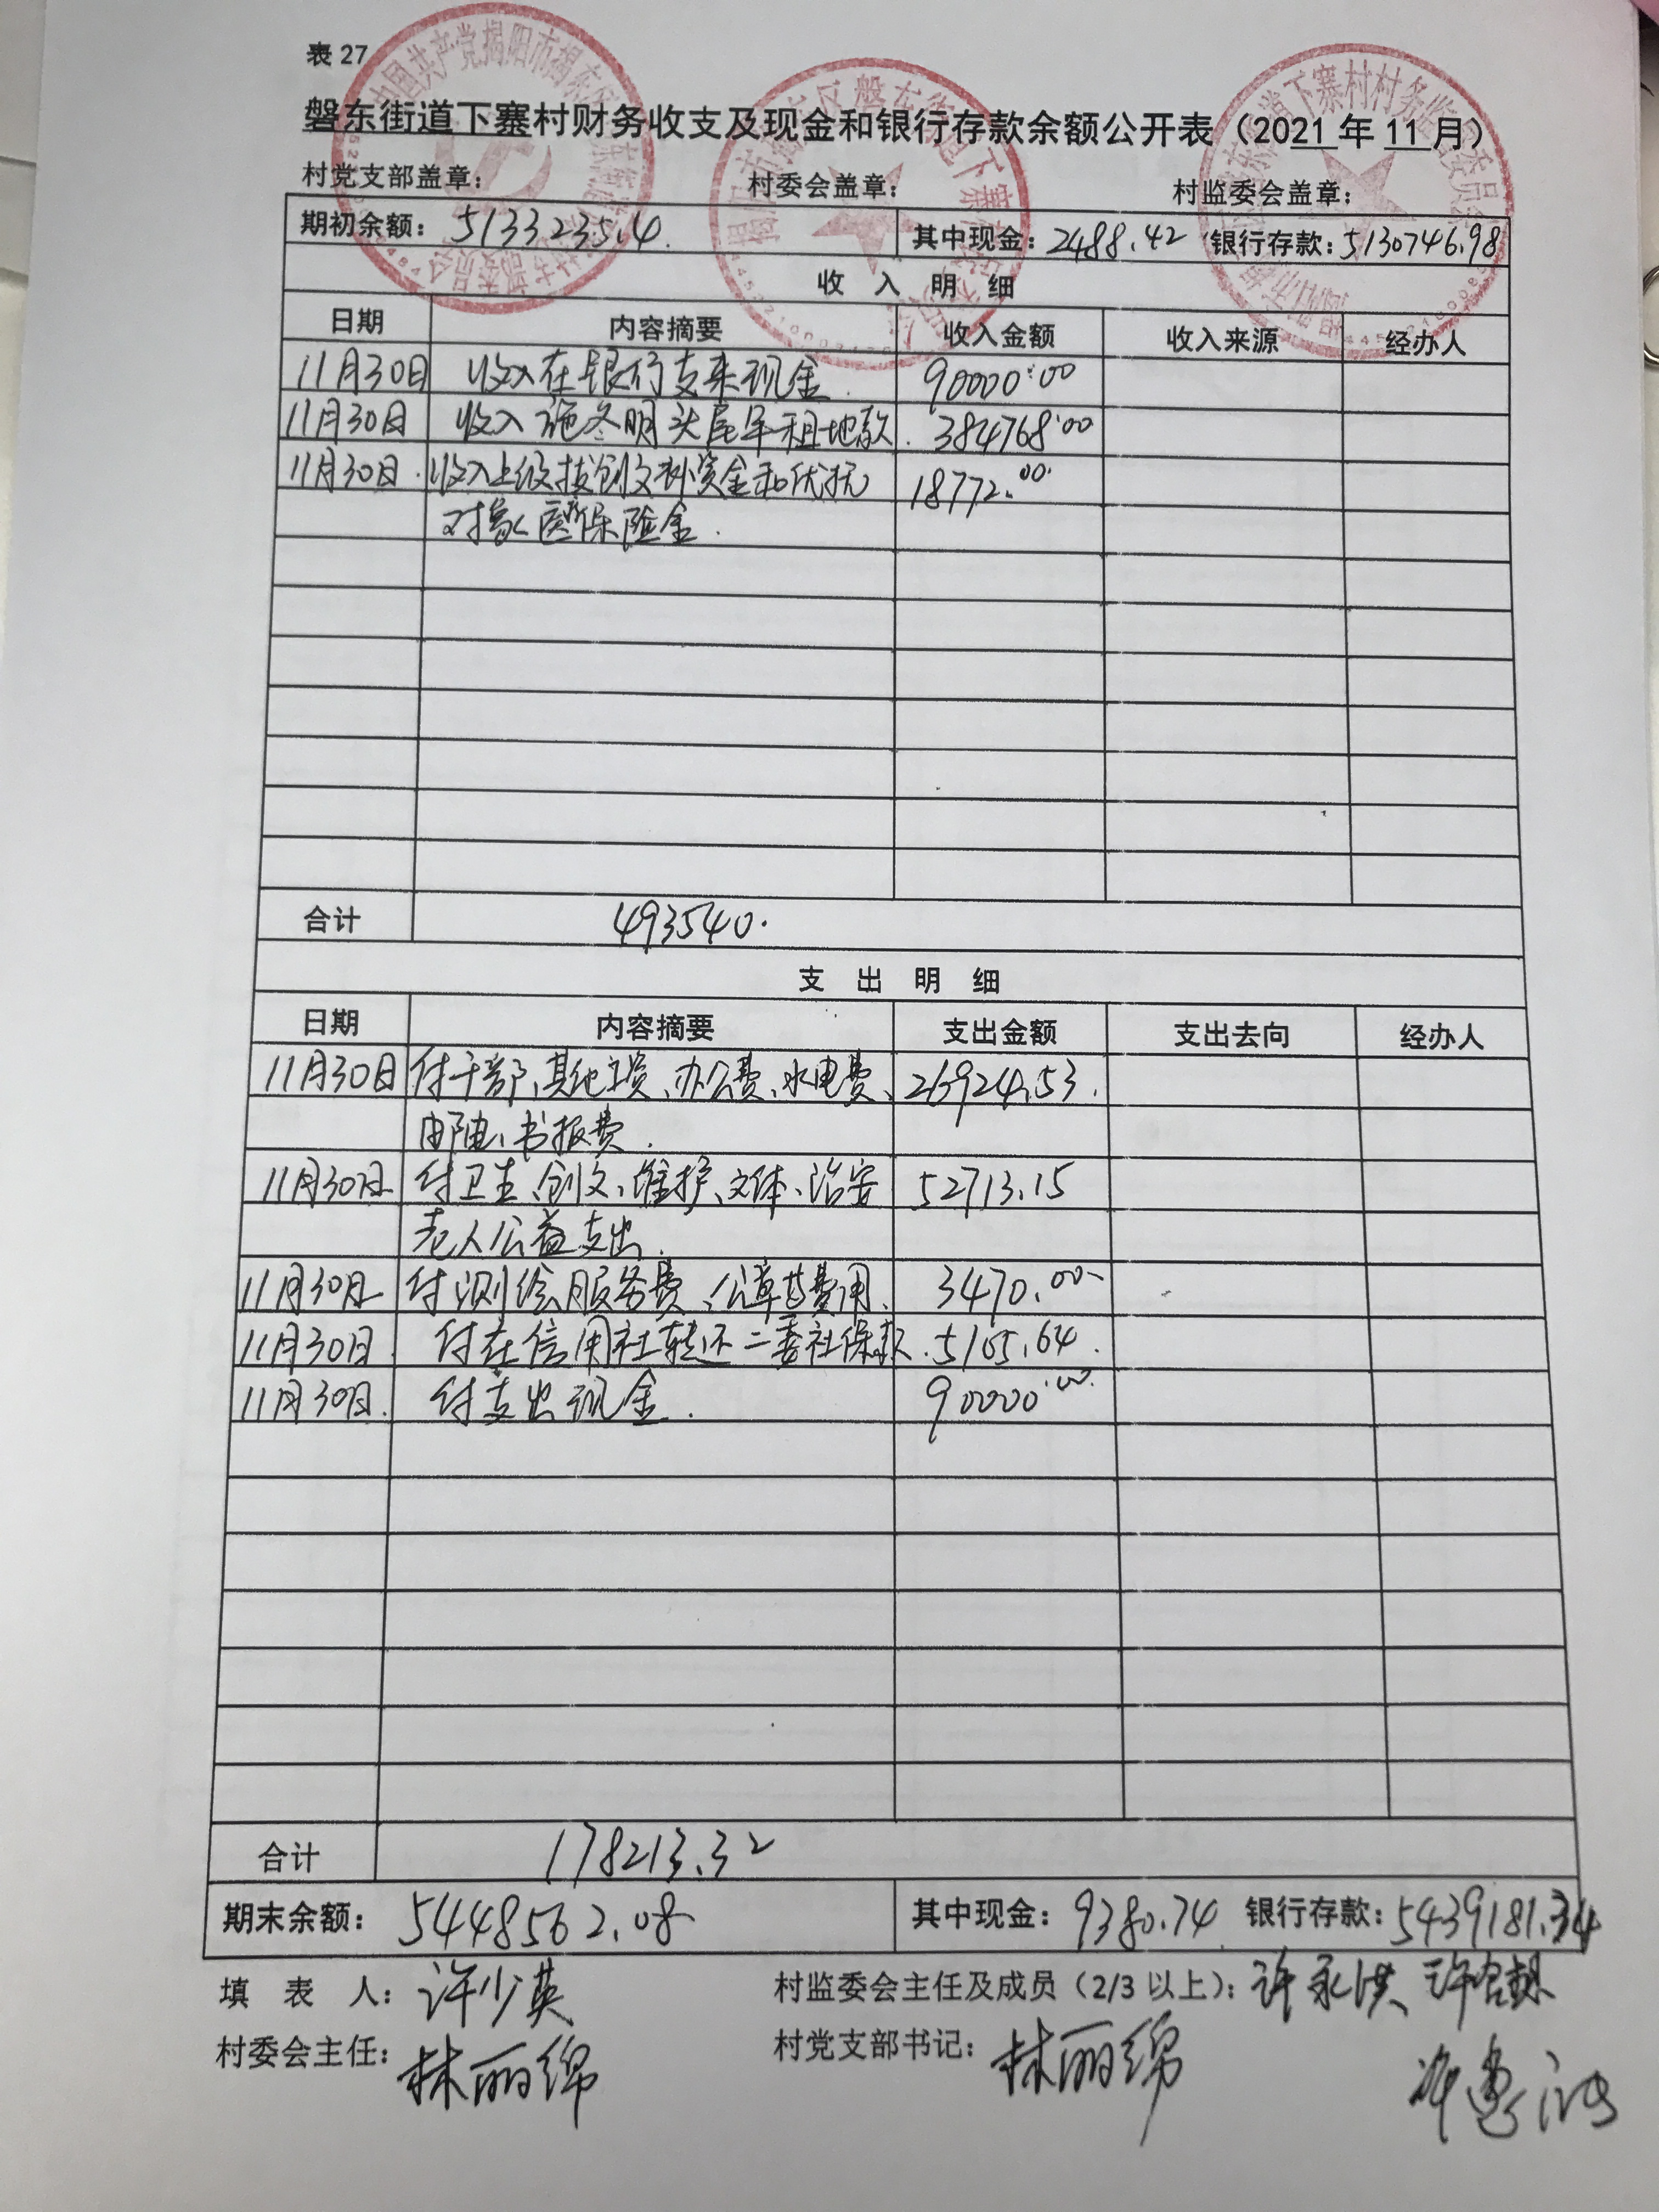 表 27
磐东街道下寨村财务收支及现金和银行存款余额公开表（2021 年 11 月）
村党支部盖章： 村委会盖章： 村监委会盖章：
期初余额：5133235.4 其中现金：2488.42 银行存款：5130746.98
收 入 明 细
日期 内容摘要 收入金额 收入来源 经办人
11月30日 收入在银行支来现金 90000.00
11月30日 收入施冬明头尾年租地款. 384768.00
11月30日. 收入上级拨创文补资金和优抚 18772.00
对象医疗保险金.
合计 493540.
支 出 明 细
日期 内容摘要 支出金额 支出去向 经办人
11月30日 付干部、其他工资、办公费、水电费、 26924.53.
书报费.
11月30日 付卫生、创文、维护、文体、治安 52713.15
老人公益支出.
11月30日 付测绘服务费、公章等费用. 3470.00
11月30日. 付在信用社转还二委社保款. 5105.64.
11月30日. 付支出现金. 90000.00
合计 178213.32
期末余额：5448562.08 其中现金：9380.74 银行存款：5439181.34
填 表 人：许少英 村监委会主任及成员（2/3 以上）：许永洪
村委会主任：林丽绵 村党支部书记：林丽绵